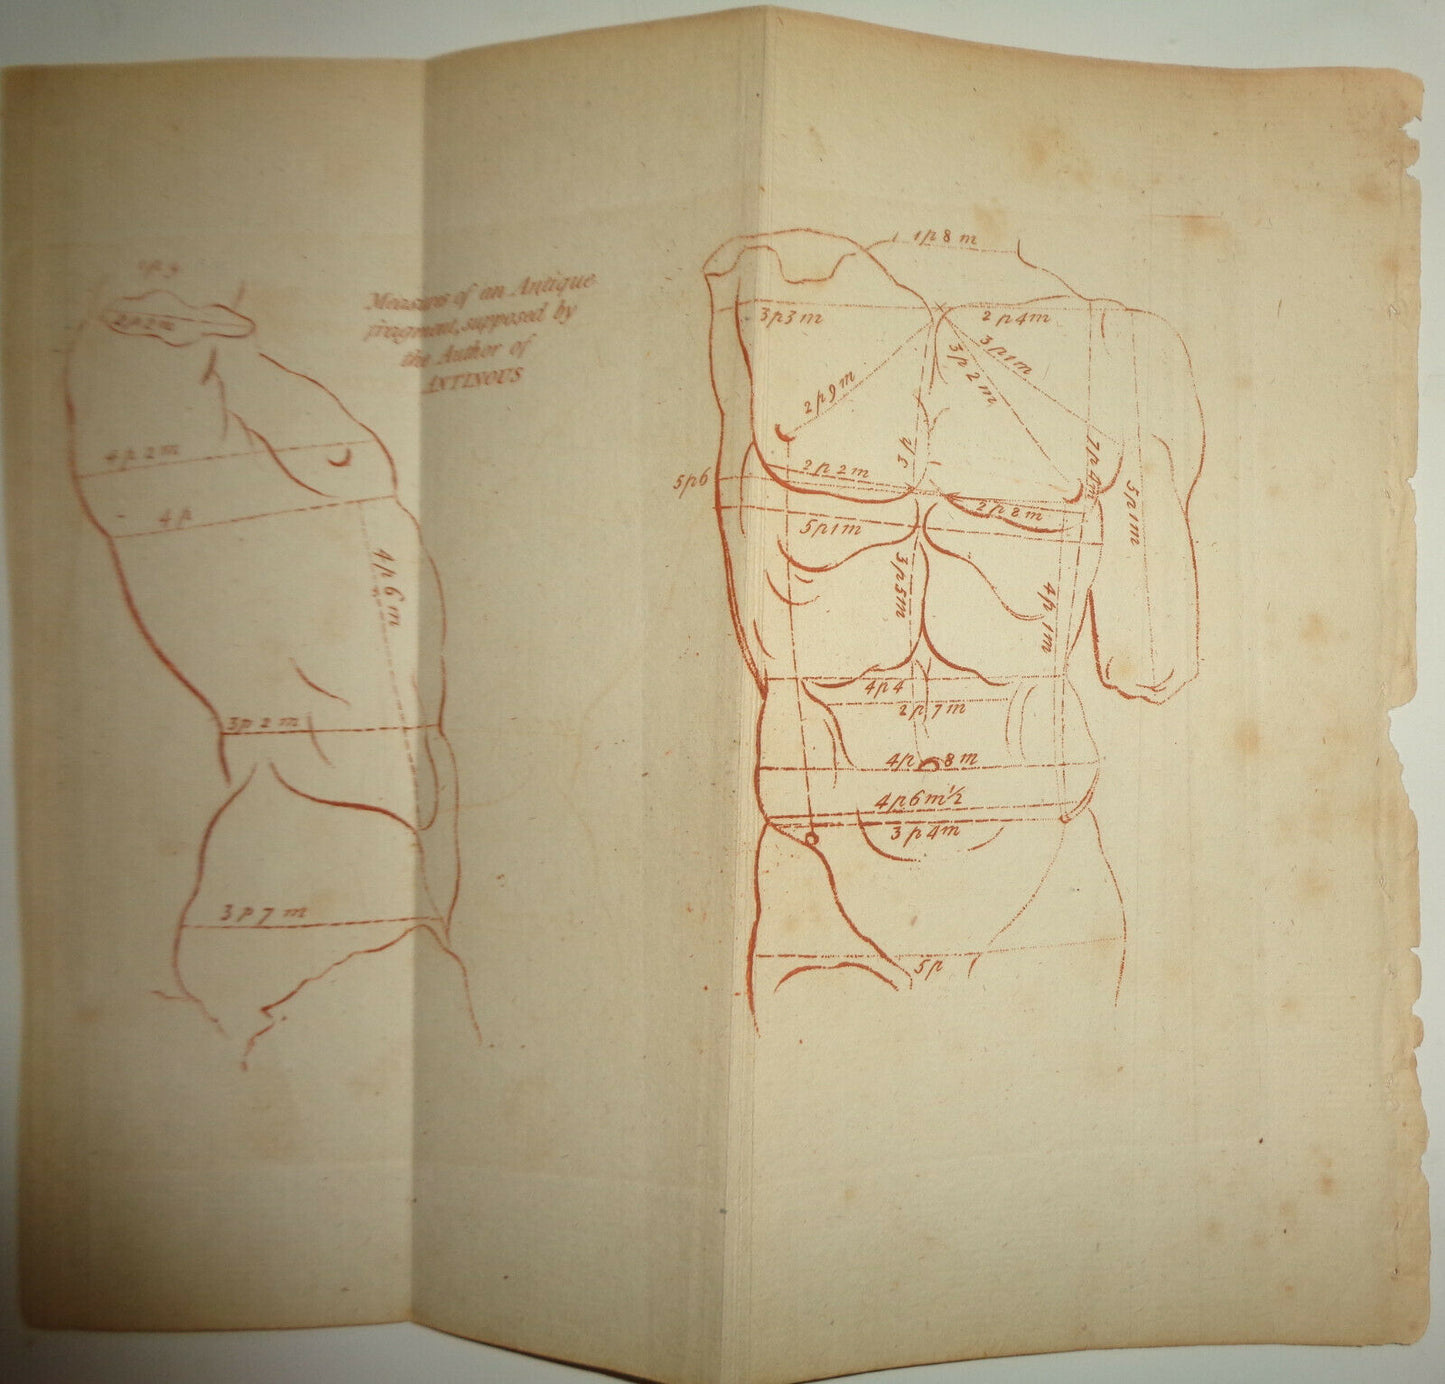 Measures of an Antique
fragment, supposed by
the Author of
ANTINOUS
2 p 2 m
4 p 2 m
4 p
4 p 6 m
3 p 2 m
3 p 7 m
1 p 8 m
3 p 3 m
2 p 4 m
3 p 1 m
3 p 2 m
2 p 9 m
2 p 2 m
5 p 6
2 p 8 m
5 p 1 m
5 p 1 m
3 p 5 m
4 p 1 m
4 p 4
2 p 7 m
4 p 8 m
4 p 6 m ½
3 p 4 m
5 p